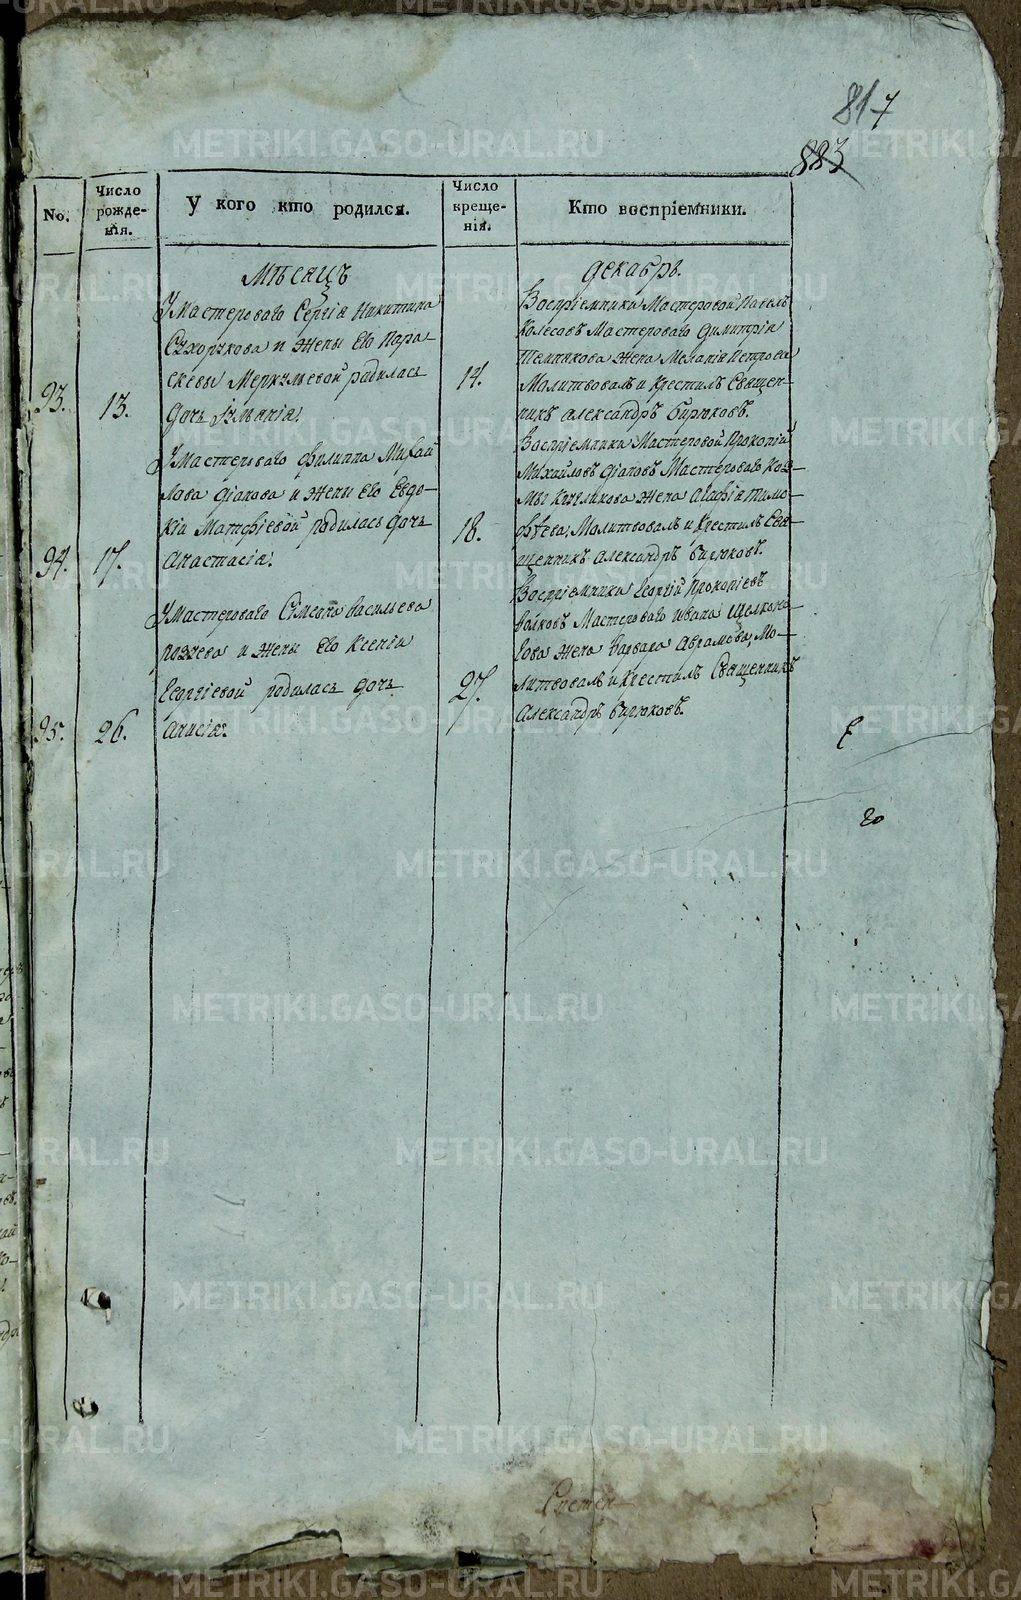 817
883
No.
Число рожде-нія.
У кого кто родился.
Число креще-нія.
Кто воспріемники.
Мѣсяцъ
декабрь.
93.
13.
У Мастероваго Сергія Никитина
Сухорукова и жены его Пара-
скевы Меркульевой родилась
дочь
14.
Воспріемники Мастеровой Павелъ
Колесовъ Мастероваго Димитрія
жена Меланія Петрова
Молитвовалъ и крестилъ Священ-
никъ Александръ Бирюковъ.
94.
17.
У Мастероваго Филиппа Михай
лова и жены его Евдо-
кіи Матфіевой родилась дочь
Анастасія.
18.
Воспріемники Мастеровой Прокопій
Михайловъ Мастероваго Коз-
мы жена Агафія Тимо-
фѣева, Молитвовалъ и Крестилъ Свя-
щенникъ Александръ Бирюковъ.
95.
26.
У Мастероваго Сімеона Васильева
и жены его Ксеніи
Георгіевой родилась дочь
Анисія.
27.
Воспріемники Георгій Прокопіевъ
Волковъ Мастероваго Ивана Щелкона-
гова жена Варвара Аврамова, Мо-
литвовалъ и Крестилъ Священникъ
Александръ Бирюковъ.
METRIKI.GASO-URAL.RU